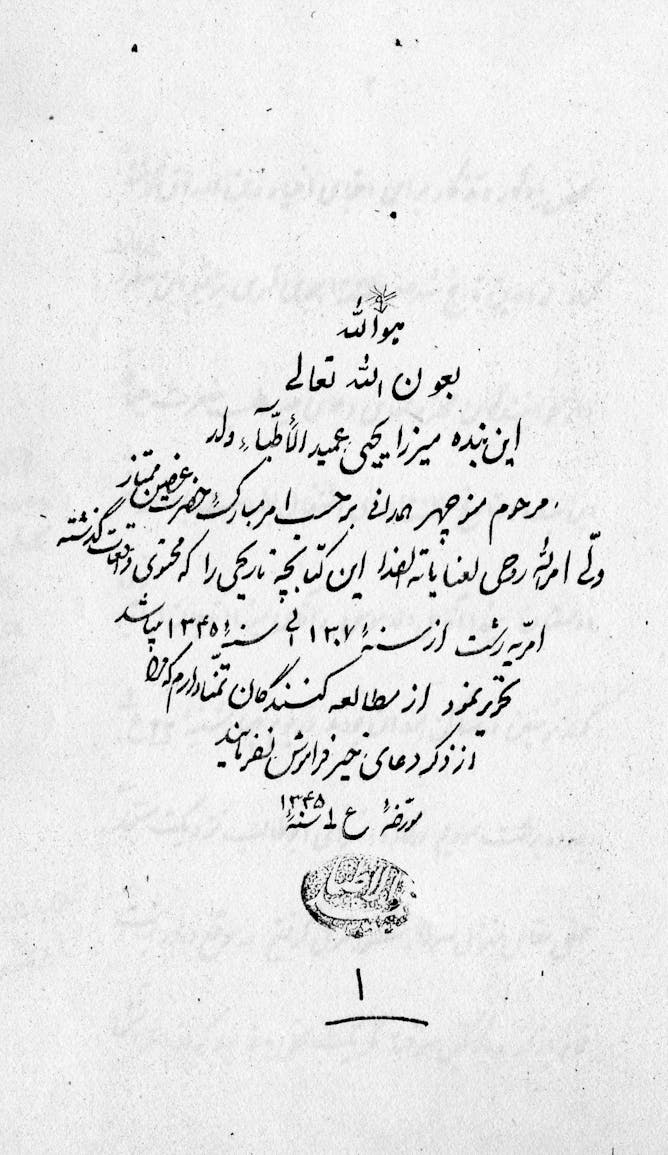 هوالله
بعون الله تعالی
این بنده میرزا یحیی عمید الأطبّاء ولد
مرحوم منوچهر همدانی برحسب امر مبارک حضرت غصن ممتاز
ولّی امرالله روحی لعنایاته الفدا این کتابچه تاریخی را که محتوی واقعات گذشته
امریه رشت از سنهٔ ۱۳۰۷ الی سنهٔ ۱۳۴۵ میباشد
تحریر نمود از مطالعه کنندگان تمنّا دارم که مرا
از ذکر دعای خیر فراموش نفرمایند
مورخهٔ ع ۱ سنهٔ ۱۳۴۵
۱